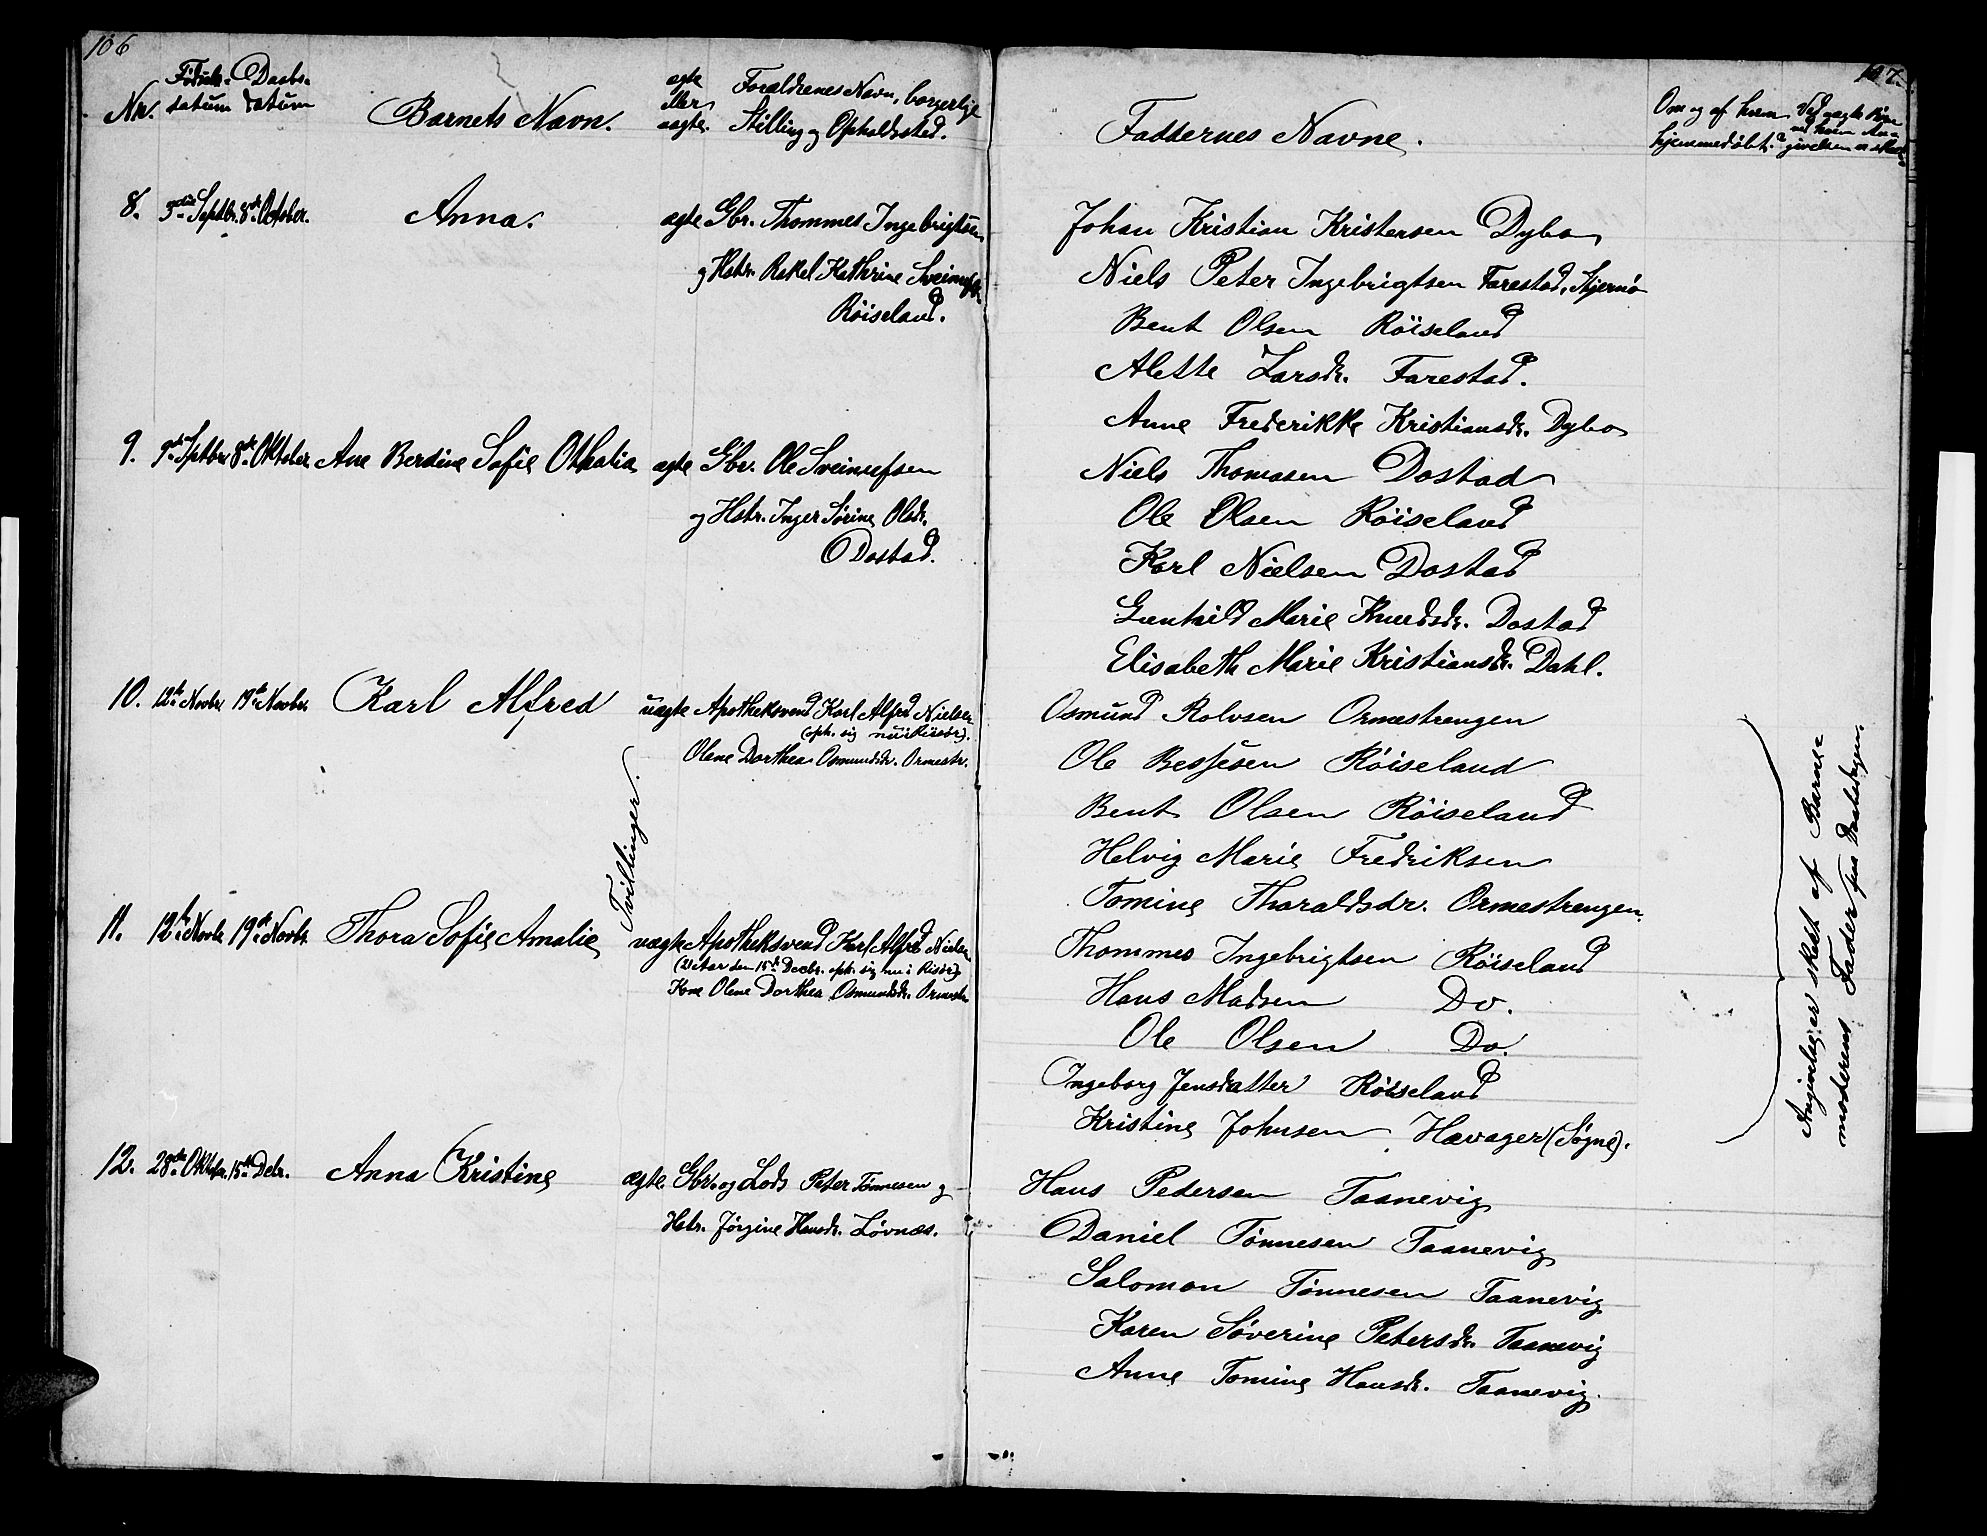 106
Nr. Fødsels- datum Daabs- datum Barnets Navn. ægte eller uægte. Forældrenes Navn, borgerlige Stilling og Opholdssted.
8. 3die Septbr. 8de October. Anna. ægte Gbr. Thommes Ingebrigtsen
og Hstr. Rakel Kathrine
Röiseland.
9. 9de Septber 8de Oktober Ane Berdine Sofie Othalia ægte Gbr. Ole Sveinusen
og Hstr. Inger Sörine Olsdr.
Dostad.
10. 12te Novbr. 19de Novber. Karl Alfred uægte Apothekssvend Karl Alfred Nielsen
(oph. sig nu i Risör).
Olene Dorthea Osmundsdr. Ormestr.
Tvillinger.
11. 12te Novb. 19de Novbr. Thora Sofie Amalie uægte Apothekssvend Karl Alfred Nielsen
(21 Aar den 15de Decbr. oph. sig nu i Risör)
Olene Dorthea Osmundsdr. Ormestr.
12. 28de Oktbr. 15de Decbr. Anna Kristine ægte. Gbr. og Lods Peter Tönnesen og
Hstr. Jörgine Hansdr. Lövnæs.
107.
Faddernes Navne.
Om og af hvem hjemmedöbt. Ved uægte Börn ved hvem Angivelsen er skeet
Johan Kristian Kristensen Dybo
Niels Peter Ingebrigtsen Farestad, Skjernö
Bent Olsen Röiseland
Alette Larsdr. Farestad.
Anne Frederikke Kristiansdr. Dybo
Niels Thomasen Dostad
Ole Olsen Röiseland
Karl Nielsen Dostad
Gunhild Marie Knudsdr. Dostad
Elisabeth Marie Kristiansdr. Dahl.
Osmund Rolvsen Ormestrengen
Ole Bessesen Röiseland
Bent Olsen Röiseland
Helvig Marie Fredriksen
Tomine Tharaldsdr. Ormestrengen.
Thommes Ingebrigtsen Röiseland
Hans Madsen Do.
Ole Olsen Do.
Ingeborg Jensdatter Röiseland
Kristine Johnsen Hævager (Sögne).
Angivelser skeet af Barne
moderens Fader
Hans Pedersen Taanevig
Daniel Tönnesen Taanevig
Salomon Tönnesen Taanevig
Karen Söverine Petersdr. Taanevig
Anne Tomine Hansdr. Taanevig.